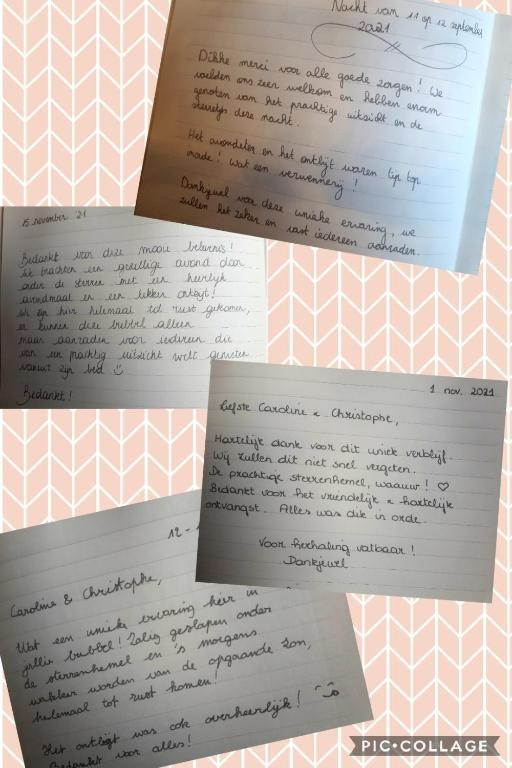 Nacht van 11 op 12 september
2021
Dikke merci voor alle goede zorgen! We
voelden ons zeer welkom en hebben enorm
genoten van het prachtige uitzicht en de
sterretjes deze nacht.
Het avondeten en het ontbijt waren tip top
orde! Wat een verwennerij!
Dankjewel voor deze unieke ervaring, we
zullen het zeker en vast iedereen aanraden.
15 november '21
Bedankt voor deze mooie belevenis!
We brachten een gezellige avond door
onder de sterren met een heerlijk
avondmaal en een lekker ontbijt!
We zijn hier helemaal tot rust gekomen,
en kunnen deze bubbel alleen
maar aanraden voor iedereen die
van een prachtig uitzicht wilt genieten
vanuit zijn bed
Bedankt!
1 nov. 2021
Liefste Caroline & Christophe,
Hartelijk dank voor dit uniek verblijf.
Wij zullen dit niet snel vergeten.
De prachtige sterrenhemel, waauw! ♡
Bedankt voor het vriendelijk & hartelijk
ontvangst. Alles was dik in orde.
Voor herhaling vatbaar!
Dankjewel
12 -
Caroline & Christophe,
Wat een unieke ervaring hier in
jullie bubbel! Zalig geslapen onder
de sterrenhemel en 's morgens
wakker worden van de opgaande zon,
helemaal tot rust komen!
Het ontbijt was ook overheerlijk!
Bedankt voor alles!
PIC•COLLAGE